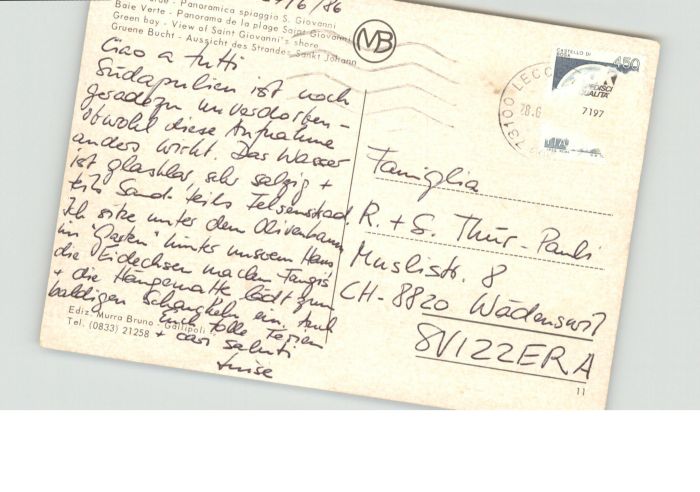 /6/86
Panoramica spiaggia S. Giovanni
Baie Verte - Panorama de la plage Saint Giovanni
Green bay - View of Saint Giovanni's shore
Gruene Bucht - Aussicht des Strandes Sankt Johann
MB
Ciao a tutti
Südapulien ist noch
geradezu unverdorben -
obwohl diese Aufnahme
anders wirkt. Das Wasser
ist glasklar, sehr salzig +
teils Sand- teils Felsenstrand.
Ich sitze unter dem Olivenbaum
im "Garten" hinter unserem Haus
die Eidechsen machen Fangis
+ die Hängematte lädt zum
baldigen Schaukeln ein. Auch
Euch tolle Ferien
+ cari saluti
Luise
Ediz. Murra Bruno - Gallipoli
Tel. (0833) 21258
CASTELLO DI
450
73100 LECC
28.6
7197
Famiglia
R. + S. Thür-Pauli
Muslistr. 8
CH-8820 Wädenswil
SVIZZERA
11